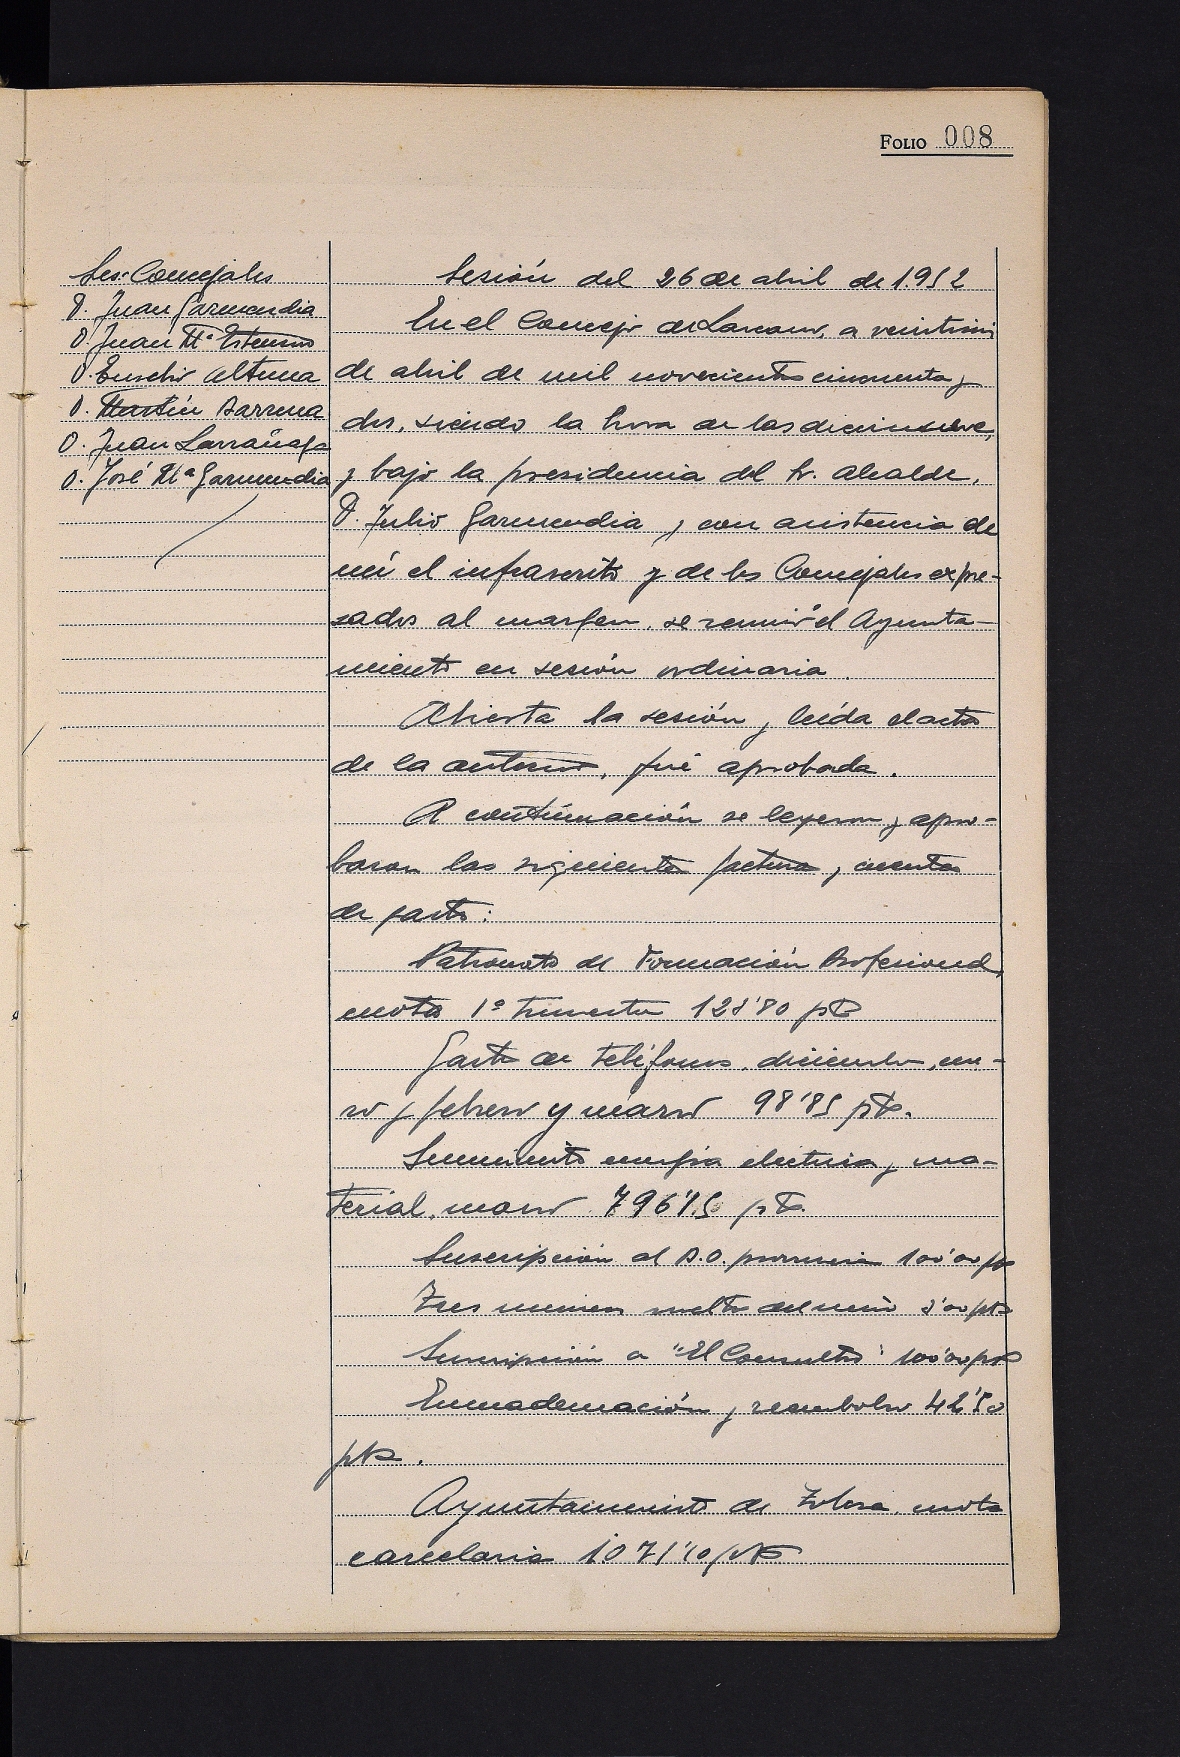 FOLIO 008
Sres. Concejales
D. Juan Garmendia
D. Juan Mª
D. Eusebio Altuna
D. Martín Barrena
D. Juan Larrañaga
D. José Mª Garmendia
Sesión del 26 de abril de 1952
En el Concejo de Lazcano, a veintiseis
de abril de mil novecientos cincuenta y
dos, siendo la hora de las diecinueve,
y bajo la presidencia del Sr. Alcalde,
D. Julio Garmendia, y con asistencia de
mí el infrascrito y de los Concejales expre-
sados al margen, se reunió el Ayunta-
miento en sesión ordinaria.
Abierta la sesión y leída el acta
de la anterior, fué aprobada.
A continuación se leyeron y apro-
baron las siguientes facturas y cuentas
de gastos:
Patronato de Formación Profesional,
cuota 1º trimestre 128'80 pts
Gasto de teléfonos, diciembre, ene-
ro y febrero y marzo 98'85 pts.
Suministro energía electrica y ma-
terial, marzo 796'15 pts.
Suscripción al B.O. provincia 100'00 pts
Tres números sueltos del mismo 3'00 pts
Suscripción a "El Consultor" 100'00 pts
Encuadernación y reembolso 42'50
pts.
Ayuntamiento de Tolosa, cuota
carcelaria 1071'10 pts